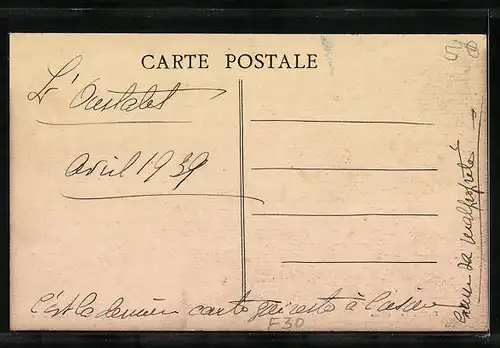 CARTE POSTALE
L'Oustalet
Avril 1939
c'est la dernière carte qui reste à
F30
malpropreté